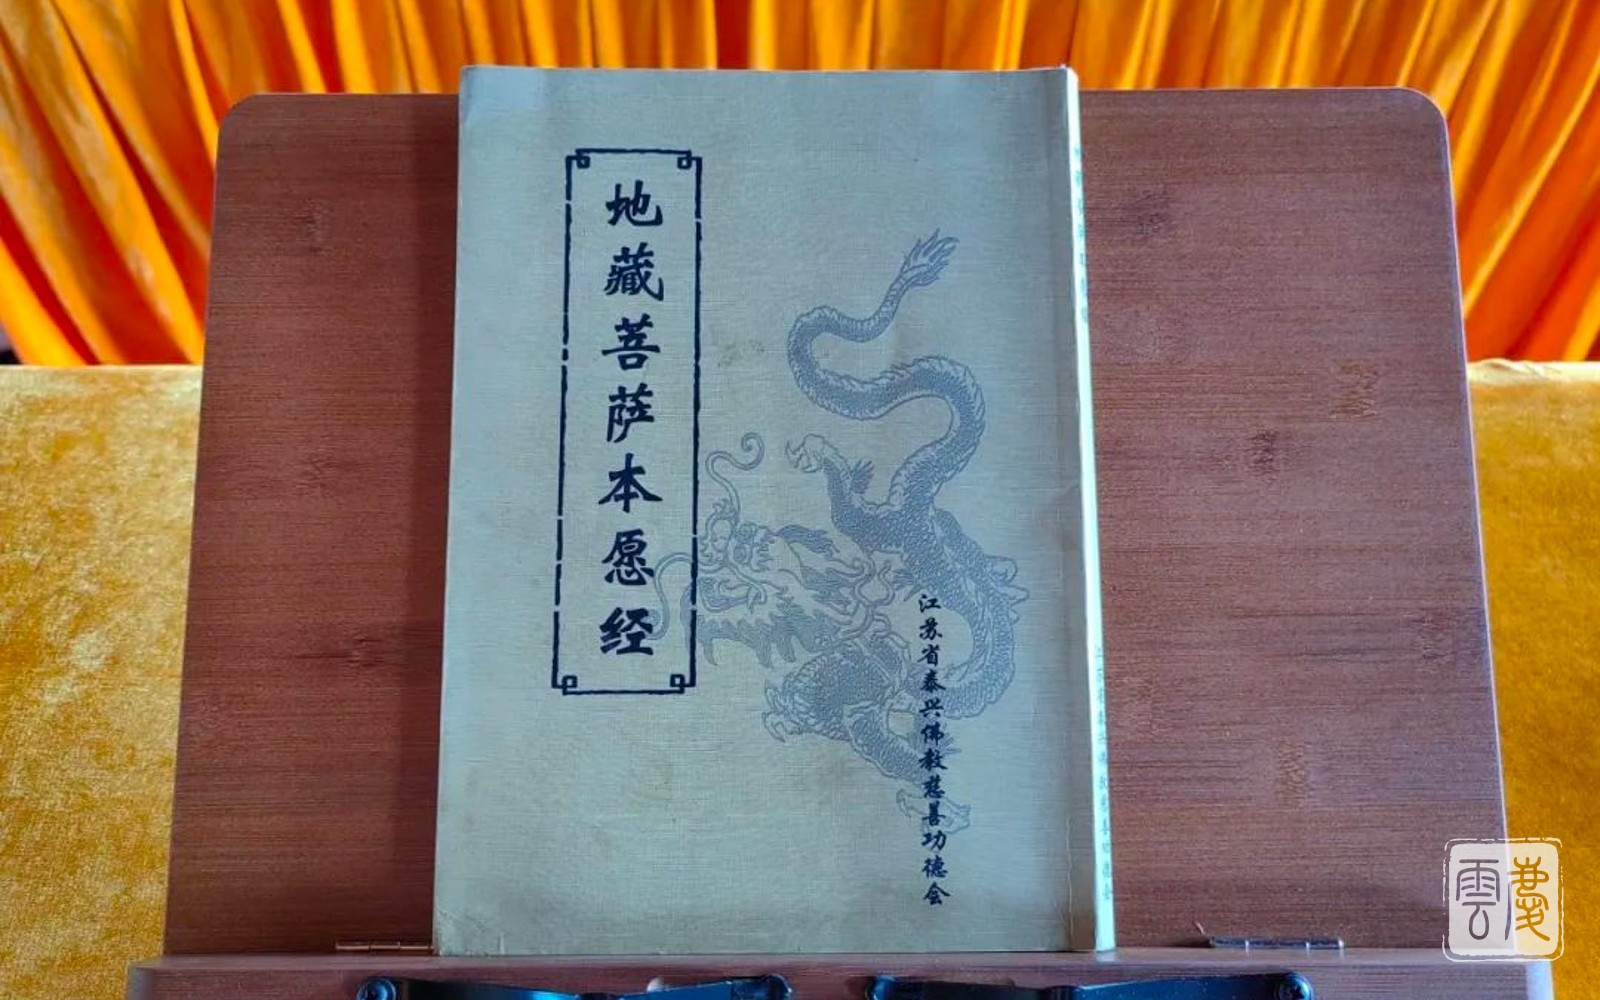 地藏菩萨本愿经
江苏省泰兴佛教慈善功德会
雲慶